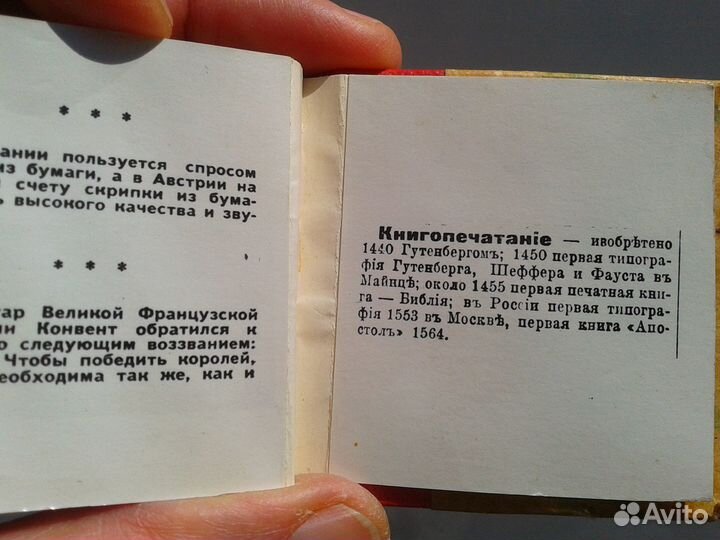 * * *
ании пользуется спросом
из бумаги, а в Австрии на
счету скрипки из бума-
высокого качества и зву-
* * *
тар Великой Французской
ии Конвент обратился к
о следующим воззванием:
Чтобы победить королей,
еобходима так же, как и
Книгопечатаніе — изобрѣтено
1440 Гутенбергомъ; 1450 первая типогра-
фія Гутенберга, Шеффера и Фауста въ
Майнцѣ; около 1455 первая печатная кни-
га — Библія; въ Россіи первая типогра-
фія 1553 въ Москвѣ, первая книга «Апо-
столъ» 1564.
Avito